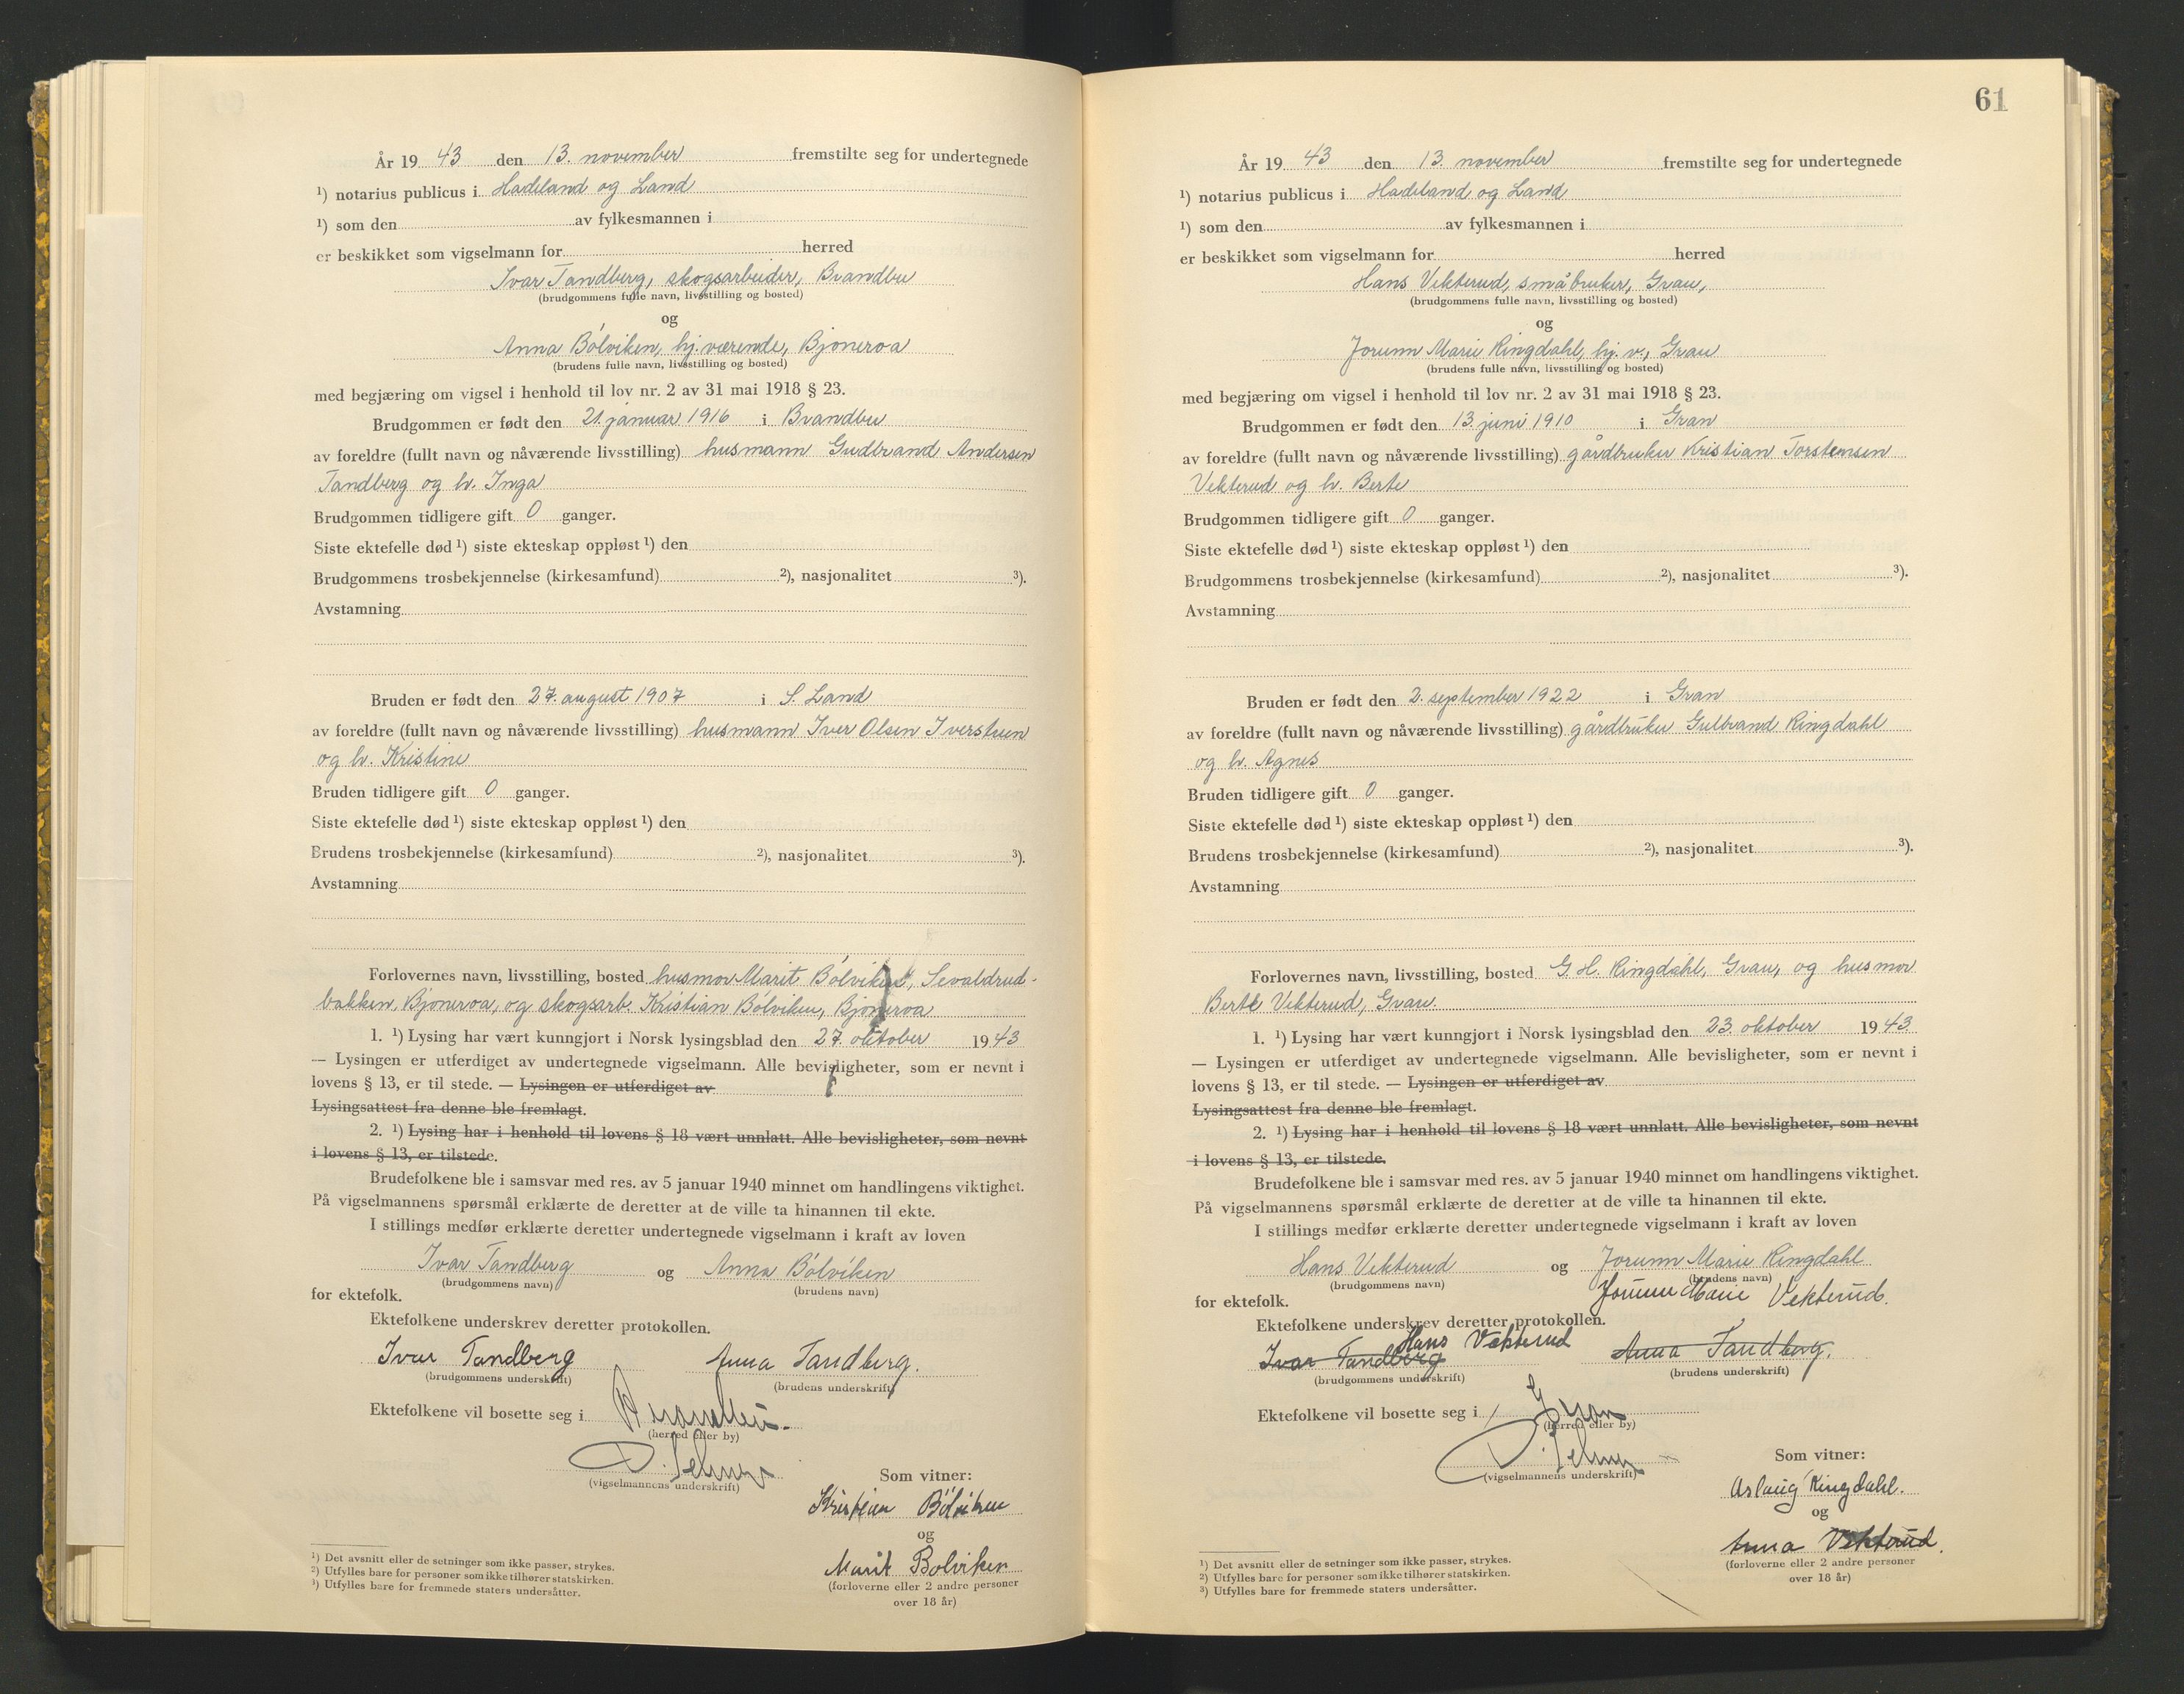 År 19 43 den 13. november fremstilte seg for undertegnede
¹) notarius publicus i Hadeland og Land
¹) som den av fylkesmannen i
er beskikket som vigselmann for herred
Ivar Tandberg, skogsarbeider, Brandbu
(brudgommens fulle navn, livsstilling og bosted)
og
Anna Bólviken, hj. værende, Bjoneroa
(brudens fulle navn, livsstilling og bosted)
med begjæring om vigsel i henhold til lov nr. 2 av 31 mai 1918 § 23.
Brudgommen er født den 21. januar 1916 i Brandbu
av foreldre (fullt navn og nåværende livsstilling) husmann Gudbrand Andersen
Tandberg og h. Inga
Brudgommen tidligere gift 0 ganger.
Siste ektefelle død ¹) siste ekteskap oppløst ¹) den
Brudgommens trosbekjennelse (kirkesamfund) ²), nasjonalitet ³).
Avstamning
Bruden er født den 27. august 1907 i S. Land
av foreldre (fullt navn og nåværende livsstilling) husmann Iver Olsen Iverstuen
og h. Kristine
Bruden tidligere gift 0 ganger.
Siste ektefelle død ¹) siste ekteskap oppløst ¹) den
Brudens trosbekjennelse (kirkesamfund) ²), nasjonalitet ³).
Avstamning
Forlovernes navn, livsstilling, bosted husmor Marit Bólviken, Sevaldrud-
bakken, Bjoneroa, og skogsarb. Kristian Bólviken, Bjoneroa
1. ¹) Lysing har vært kunngjort i Norsk lysingsblad den 27. oktober 19 43
— Lysingen er utferdiget av undertegnede vigselmann. Alle bevisligheter, som er nevnt i
lovens § 13, er til stede. — Lysingen er utferdiget av
Lysingsattest fra denne ble fremlagt.
2. ¹) Lysing har i henhold til lovens § 18 vært unnlatt. Alle bevisligheter, som nevnt
i lovens § 13, er tilstede.
Brudefolkene ble i samsvar med res. av 5 januar 1940 minnet om handlingens viktighet.
På vigselmannens spørsmål erklærte de deretter at de ville ta hinannen til ekte.
I stillings medfør erklærte deretter undertegnede vigselmann i kraft av loven
Ivar Tandberg og Anna Bólviken
(brudgommens navn) (brudens navn)
for ektefolk.
Ektefolkene underskrev deretter protokollen.
Ivar Tandberg Anna Tandberg.
(brudgommens underskrift) (brudens underskrift)
Ektefolkene vil bosette seg i Brandbu.
(herred eller by)
(vigselmannens underskrift)
Som vitner:
Kristian Bólviken
og
Marit Bolviken
(forloverne eller 2 andre personer
over 18 år)
¹) Det avsnitt eller de setninger som ikke passer, strykes.
²) Utfylles bare for personer som ikke tilhører statskirken.
³) Utfylles bare for fremmede staters undersåtter.
61
År 19 43 den 13. november fremstilte seg for undertegnede
¹) notarius publicus i Hadeland og Land
¹) som den av fylkesmannen i
er beskikket som vigselmann for herred
Hans Vekterud, småbruker, Gran,
(brudgommens fulle navn, livsstilling og bosted)
og
Jorunn Marie Ringdahl, hj. v., Gran
(brudens fulle navn, livsstilling og bosted)
med begjæring om vigsel i henhold til lov nr. 2 av 31 mai 1918 § 23.
Brudgommen er født den 13. juni 1910 i Gran
av foreldre (fullt navn og nåværende livsstilling) gårdbruker Kristian Torstensen
Vekterud og h. Berte
Brudgommen tidligere gift 0 ganger.
Siste ektefelle død ¹) siste ekteskap oppløst ¹) den
Brudgommens trosbekjennelse (kirkesamfund) ²), nasjonalitet ³).
Avstamning
Bruden er født den 2. september 1922 i Gran
av foreldre (fullt navn og nåværende livsstilling) gårdbruker Gulbrand Ringdahl
og h. Agnes
Bruden tidligere gift 0 ganger.
Siste ektefelle død ¹) siste ekteskap oppløst ¹) den
Brudens trosbekjennelse (kirkesamfund) ²), nasjonalitet ³).
Avstamning
Forlovernes navn, livsstilling, bosted G. H. Ringdahl, Gran, og husmor
Berte Vekterud, Gran.
1. ¹) Lysing har vært kunngjort i Norsk lysingsblad den 23. oktober 19 43.
— Lysingen er utferdiget av undertegnede vigselmann. Alle bevisligheter, som er nevnt i
lovens § 13, er til stede. — Lysingen er utferdiget av
Lysingsattest fra denne ble fremlagt.
2. ¹) Lysing har i henhold til lovens § 18 vært unnlatt. Alle bevisligheter, som nevnt
i lovens § 13, er tilstede.
Brudefolkene ble i samsvar med res. av 5 januar 1940 minnet om handlingens viktighet.
På vigselmannens spørsmål erklærte de deretter at de ville ta hinannen til ekte.
I stillings medfør erklærte deretter undertegnede vigselmann i kraft av loven
Hans Vekterud og Jorunn Marie Ringdahl
(brudgommens navn) (brudens navn)
for ektefolk. Jorunn Marie Vekterud.
Ektefolkene underskrev deretter protokollen.
Hans Vekterud
Ivar Tandberg Anna Tandberg.
(brudgommens underskrift) (brudens underskrift)
Ektefolkene vil bosette seg i Gran
(herred eller by)
(vigselmannens underskrift)
Som vitner:
Aslaug Ringdahl.
og
Anna Vekterud.
(forloverne eller 2 andre personer
over 18 år)
¹) Det avsnitt eller de setninger som ikke passer, strykes.
²) Utfylles bare for personer som ikke tilhører statskirken.
³) Utfylles bare for fremmede staters undersåtter.